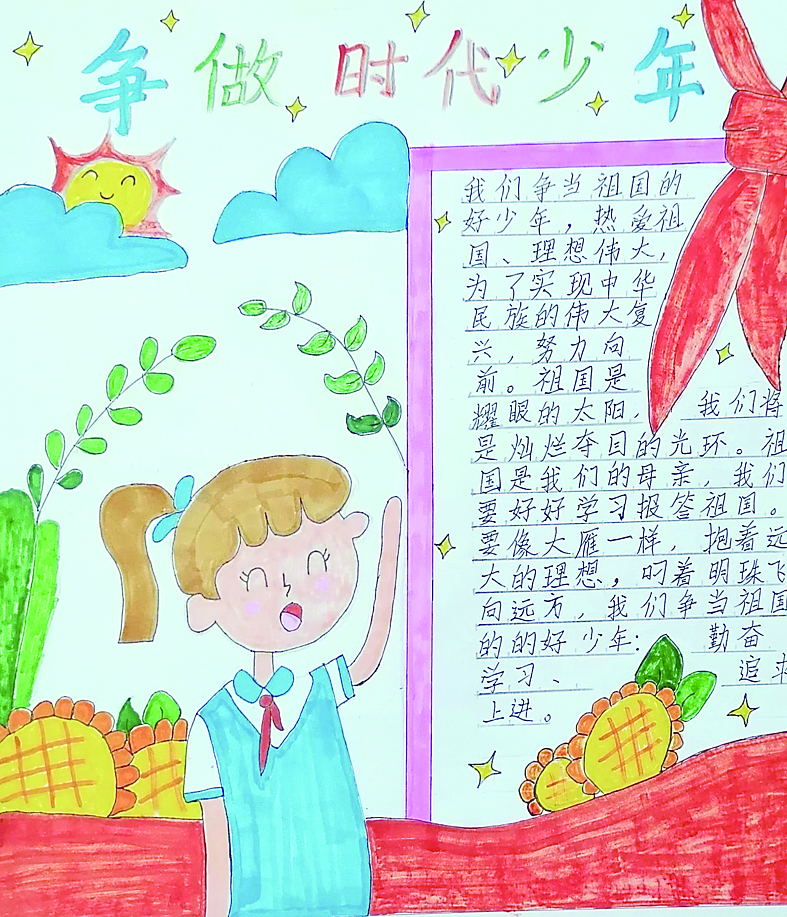 争做时代少年
我们争当祖国的
好少年，热爱祖
国、理想伟大，
为了实现中华
民族的伟大复
兴，努力向
前。祖国是
耀眼的太阳，我们将
是灿烂夺目的光环。祖
国是我们的母亲，我们
要好好学习报答祖国。
要像大雁一样，抱着远
大的理想，叼着明珠飞
向远方，我们争当祖国
的的好少年：勤奋
学习、追求
上进。